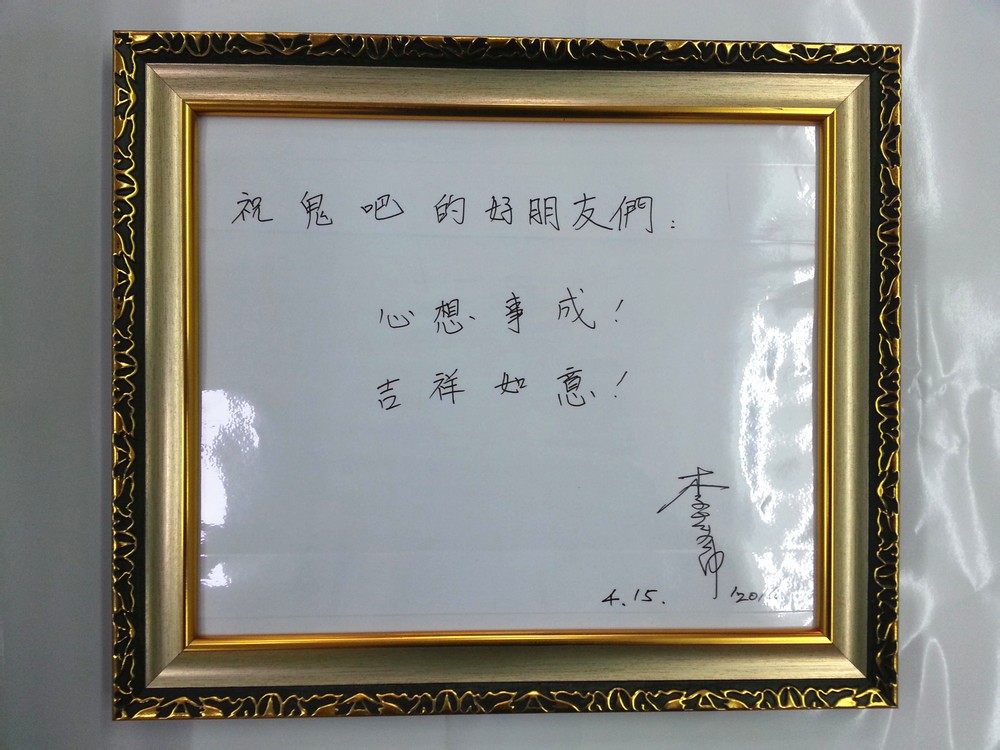 祝鬼吧的好朋友們：
心想事成！
吉祥如意！
李
4.15.